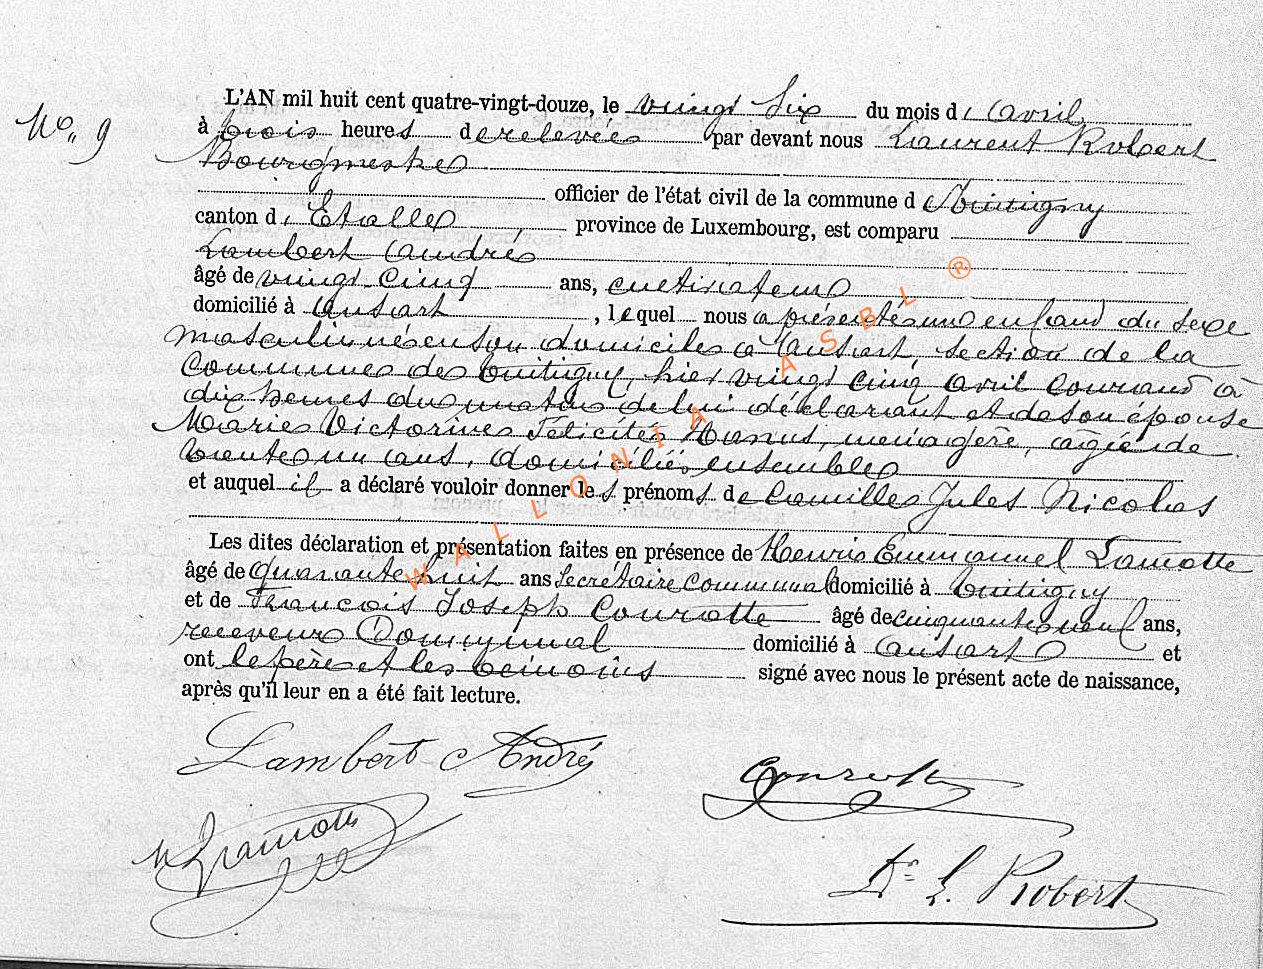 No. 9
L'AN mil huit cent quatre-vingt-douze, le vingt six du mois d'avril
à trois heures de relevée par devant nous Laurent Robert
Bourgmestre
officier de l'état civil de la commune de Tintigny
canton d'Etalle, province de Luxembourg, est comparu
Lambert André
âgé de vingt cinq ans, cultivateur
domicilié à Ansart, lequel nous a présenté un enfant du sexe
masculin né en son domicile à Ansart, section de la
commune de Tintigny, hier vingt cinq avril courant à
dix heures du matin de lui déclarant et de son épouse
Marie Victorine Félicité Hanus, ménagère, agée de
trente un ans, domiciliés ensemble
et auquel il a déclaré vouloir donner les prénoms de Camille Jules Nicolas
Les dites déclaration et présentation faites en présence de Henri Emmanuel Lamotte
âgé de quarante huit ans Secrétaire Communal domicilié à Tintigny
et de François Joseph Conrotte âgé de cinquante neuf ans,
receveur Communal domicilié à Ansart et
ont le père et les témoins signé avec nous le présent acte de naissance,
après qu'il leur en a été fait lecture.
Lambert André
Conrotte
H Lamotte
Dr L. Robert
WALLONIA ASBL ®